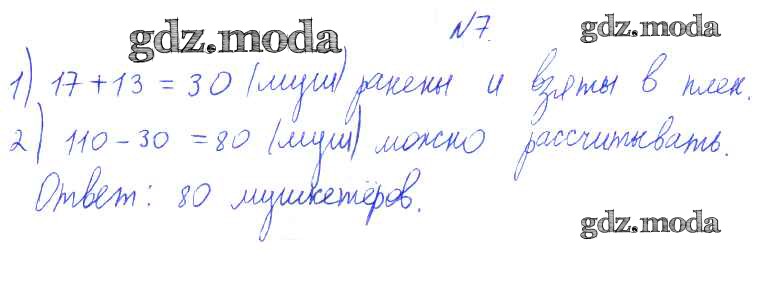 №7.
gdz.moda
gdz.moda
1) 17+13=30 (муш) ранены и взяты в плен.
2) 110-30=80 (муш) можно рассчитывать.
Ответ: 80 мушкетёров.
gdz.moda